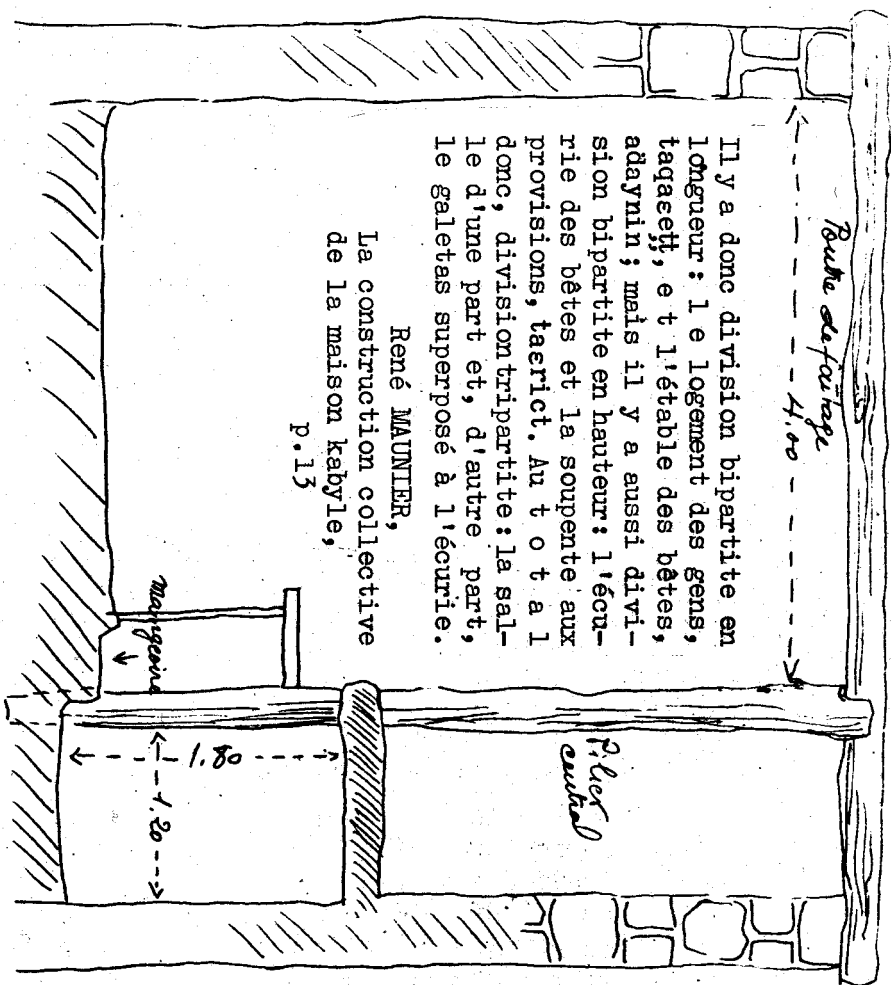 Poutre de faîtage
4.00
Il y a donc division bipartite en
longueur: l e logement des gens,
taqaεett, e t l'étable des bêtes,
adaynin; mais il y a aussi divi-
sion bipartite en hauteur: l'écu-
rie des bêtes et la soupente aux
provisions, taεrict. Au t o t a l
donc, division tripartite: la sal-
le d'une part et, d'autre part,
le galetas superposé à l'écurie.
René MAUNIER,
La construction collective
de la maison kabyle,
p.13
Pilier
central
mangeoire
1.80
1.20